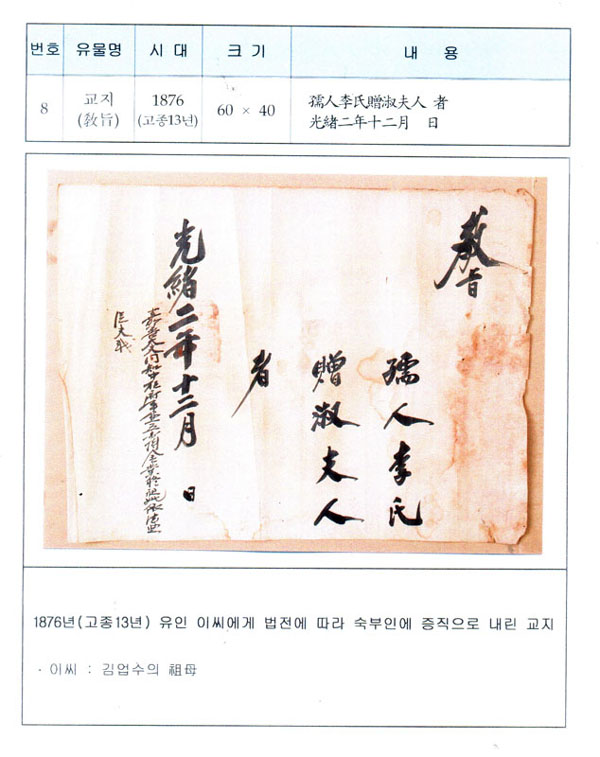 번호 유물명 시 대 크 기 내 용
8 교지 (敎旨) 1876 (고종13년) 60 × 40 孺人李氏贈淑夫人 者
光緖二年十二月 日
敎旨
孺人李氏
贈淑夫人
者
光緖二年十二月 日
1876년(고종13년) 유인 이씨에게 법전에 따라 숙부인에 증직으로 내린 교지
- 이씨 : 김업수의 祖母